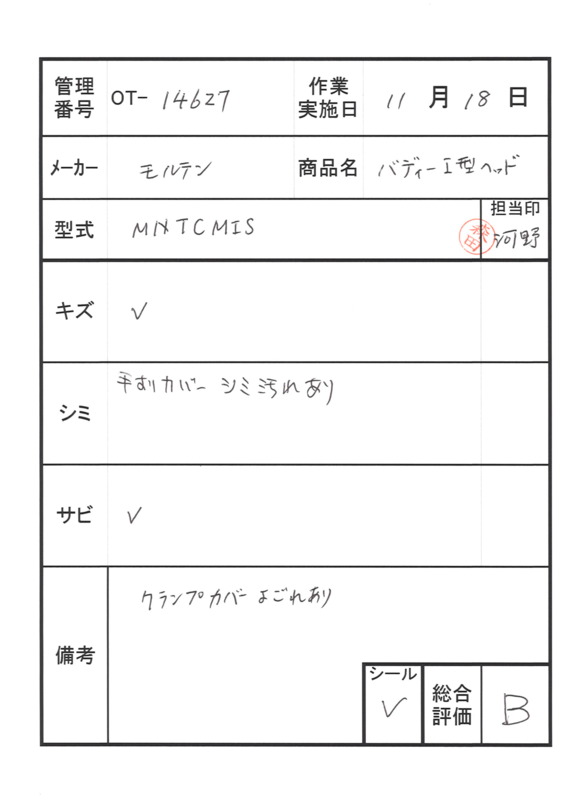 管理番号 OT- 14627 作業実施日 11月18日
メーカー モルテン 商品名 バディーI型ヘッド
型式 MNTCMIS 担当印 森田 河野
キズ ✓
シミ 手すりカバー シミ汚れあり
サビ ✓
備考 クランプカバーよごれあり
シール ✓ 総合評価 B